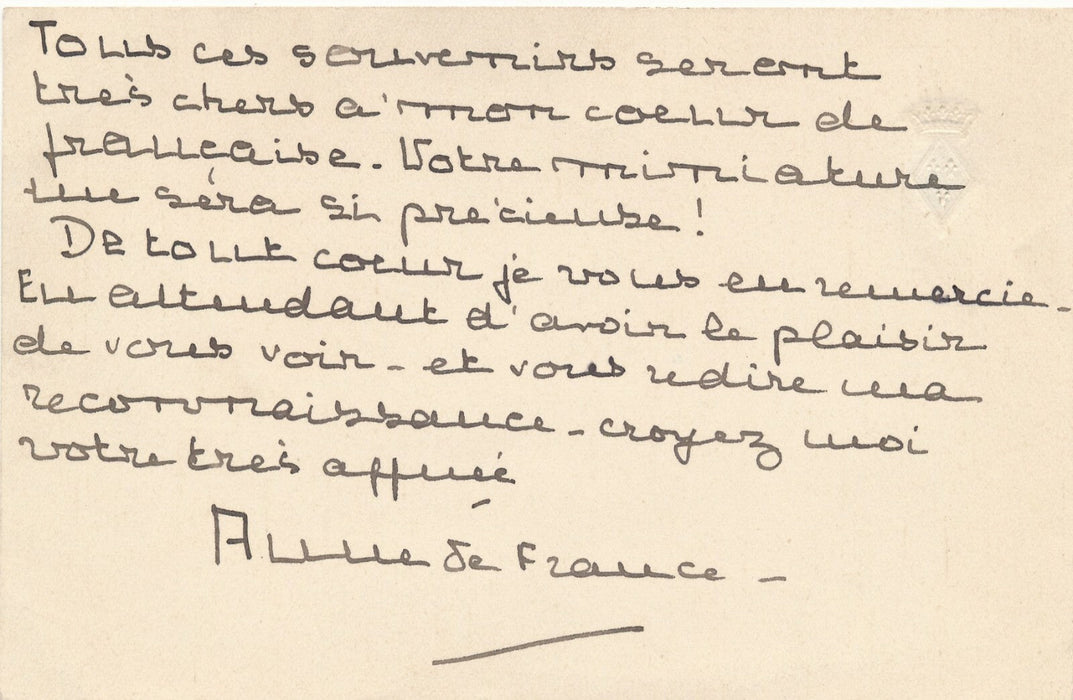 Tous ces souvenirs seront
très chers a' mon coeur de
française. Votre miniature
me séra si précieuse !
De tout coeur je vous en remercie -
En attendant d'avoir le plaisir
de vous voir - et vous redire ma
reconnaissance - croyez moi
votre très affnée
Anne de France -